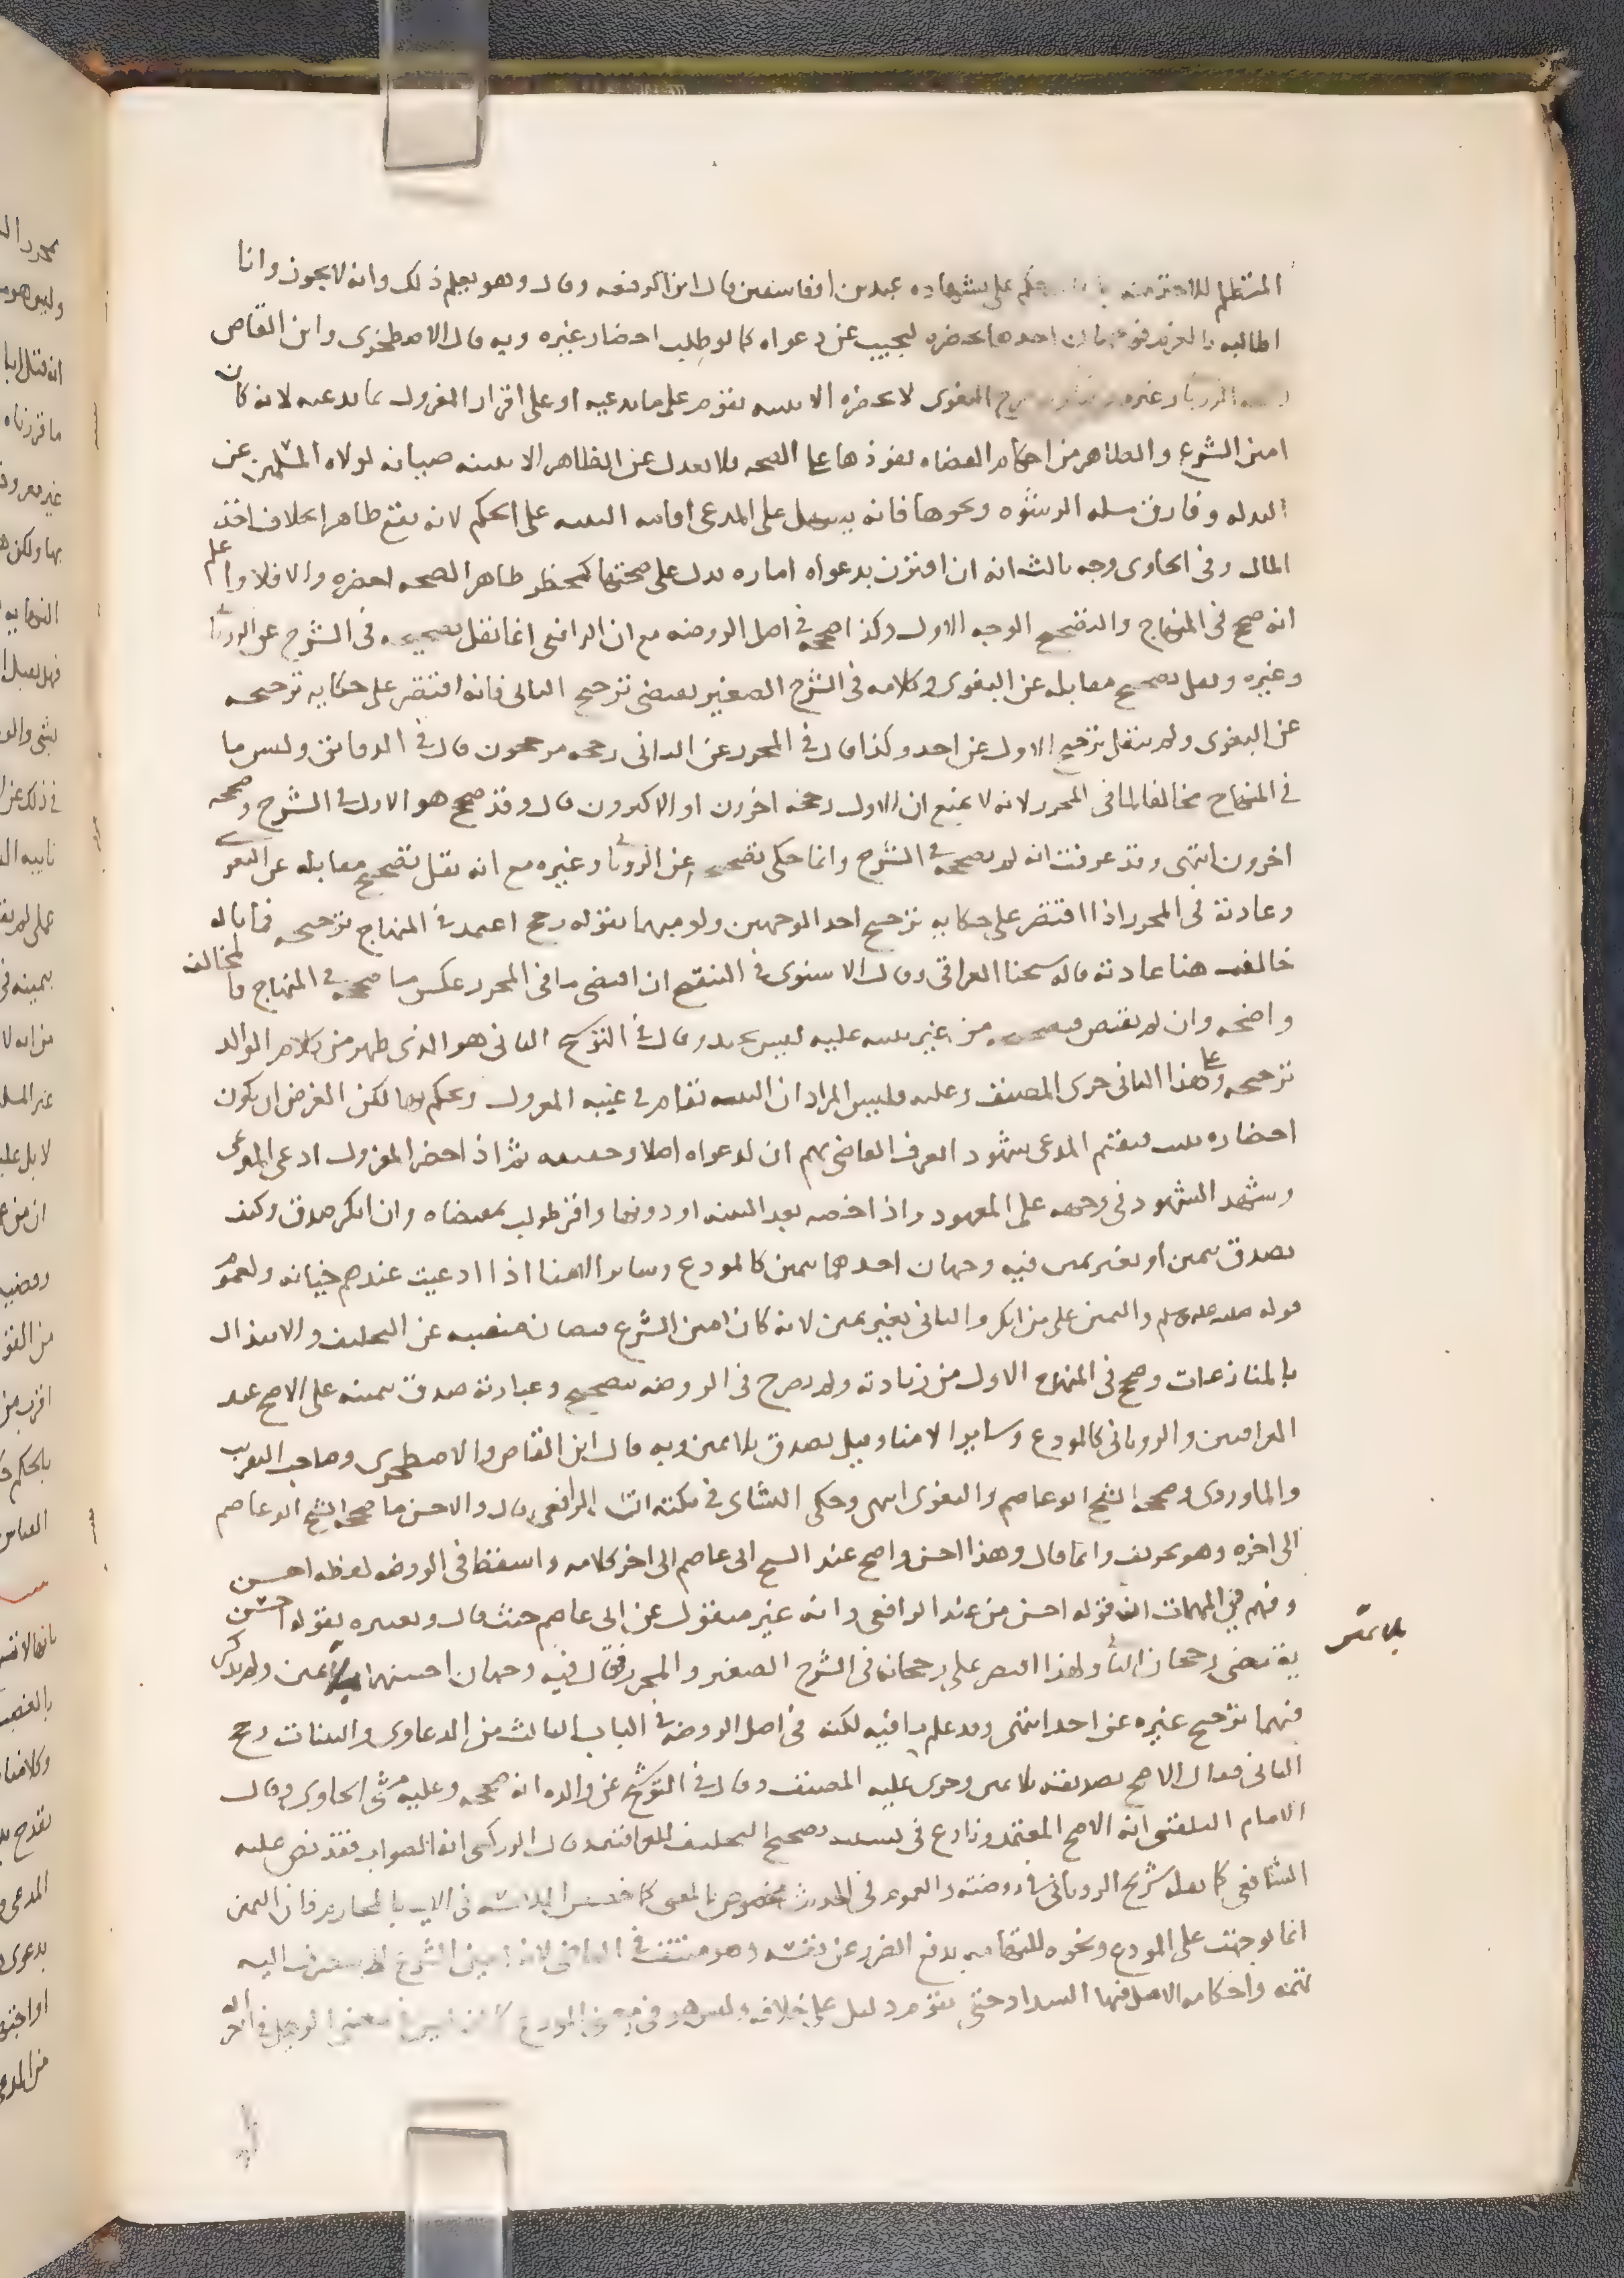 المتظلم للاحترمنه حكم على بشهاده عبدين او فاسقين قال ابن الرفعه وقال وهو يعلم ذلك وانه لا يجوز وانا
اطالبه بالغرم فوجهان احدهما يحضره ليجيب عن دعواه كما لو طلب احضار غيره وبه قال الاصطخرى وابن القاص
وغيره البغوى لا يحضره الا ببينه تقوم على ما يدعيه او على اقرار المعزول بما يدعيه لانه كان
امين الشرع والظاهر من احكام القضاه نفوذها على الصحه فلا يعدل عن الظاهر الا ببينه صيانه لولاه المسلمين عن
البذله وفارق مسله الرشوه ونحوها فانه يسهل على المدعى اقامه البينه على الحكم لانه يقع ظاهرا بخلاف اخذ
المال وفى الحاوى وجه ثالث انه ان اقترن بدعواه اماره تدل على صحتها كمحضر ظاهر الصحه احضره والا فلا واعلم
انه صحح فى المنهاج والتصحيح الوجه الاول وكذا صححه فى اصل الروضه مع ان الرافعى انما نقل تصحيحه فى الشرح عن الرويانى
وغيره ونقل تصحيح مقابله عن البغوى وكلامه فى الشرح الصغير يقتضى ترجيح الثانى فانه اقتصر على حكايه ترجيحه
عن البغوى ولم ينقل ترجيح الاول عن احد وكذا قال فى المحرر عن الثانى رجحه مرجحون قال فى الدقائق وليس ما
فى المنهاج مخالفا لما فى المحرر لانه لا يمنع ان الاول رجحه اخرون او الاكثرون قال وقد صحح هو الاول فى الشرح وصححه
اخرون انتهى وقد عرفت انه لم يصححه فى الشرح وانما حكى تصحيحه عن الرويانى وغيره مع انه نقل تصحيح مقابله عن البغوى
وعادته فى المحرر اذا اقتصر على حكايه ترجيح احد الوجهين ولو مبهما بقوله رجح اعتمد فى المنهاج ترجيحه فما باله
خالف هنا عادته قاله شيخنا العراقى وقال الاسنوى فى التنقيح ان اقتضى ما فى المحرر عكس ما صححه فى المنهاج فالمخالفه
واضحه وان لم يقتض فتصحيحه من غير تنبيه عليه ليس بجيد وقال فى التوشيح الثانى هو الذى ظهر من كلام الوالد
ترجيحه وعلى هذا الثانى جرى المصنف وعليه فليس المراد ان البينه تقام فى غيبه المعزول ويحكم بها لكن الغرض ان يكون
احضاره بثبت فيقيم المدعى شهودا يعرف القاضى بهم ان لدعواه اصلا وحقيقه ثم اذا حضر المعزول ادعى المدعى
وشهد الشهود فى وجهه على المعهود واذا احضره بعد البينه او دونها واقر طولب بمقتضاه وان انكر صدق وكيف
يصدق بيمين او بغير يمين فيه وجهان احدهما بيمين كالمودع وسائر الامنا اذا ادعيت عندهم خيانه ولعموم
قوله صلى الله عليه وسلم واليمين على من انكر والثانى بغير يمين لانه كان امين الشرع فيصان منصبه عن التحليف والابتذال
بالمنازعات وصحح فى المنهاج الاول من زيادته ولم يصرح فى الروضه بتصحيح وعبارته صدق بيمينه على الاصح عند
العراقيين والرويانى كالمودع وسائر الامنا وقيل يصدق بلا يمين وبه قال ابن القاص والاصطخرى وصاحب التقريب
والماوردى وصححه الشيخ ابو عاصم والبغوى انتهى وحكى النشائى فى نكته ان الرافعى قال والاحسن ما صححه الشيخ ابو عاصم
الى اخره وهو تحريف وانما قال وهذا احسن واصح عند الشيخ ابى عاصم الى اخر كلامه واسقط فى الروضه لفظه احسن
وفهم فى المهمات ان قوله احسن من عند الرافعى وانه غير منقول عن ابى عاصم حيث قال وتعبيره بقوله احسن
يقتضى رجحان الثانى ولهذا اقتصر على رجحانه فى الشرح الصغير والمحرر فقال فيه وجهان احسنهما بلا يمين ولم يذكر
بلا يمين
فيهما ترجيح غيره عن احد انتهى وقد علم ما فيه لكنه فى اصل الروضه فى الباب الثالث من الدعاوى والبينات رجح
الثانى فقال الاصح تصديقه بلا يمين وجرى عليه المصنف وقال فى التوشيح عن والده انه صححه وعليه مشى الحاوى وقال
الامام البلقينى انه الاصح المعتمد ونازع فى تصحيح التحليف قال الزركشى انه الصواب فقد نص عليه
الشافعى كما نقله شريح الرويانى فى روضته والعموم فى الحديث مخصوص بالمعنى كما خصص بالمحارم فان اليمين
انما توجهت على المودع ونحوه للتهامه بدفع الضرر عن نفسه وهو منتف فى القاضى لانه امين الشرع اليه
تهمه واحكامه الاصل فيها السداد حتى يقوم دليل على خلافه وليس هو فى معنى المودع